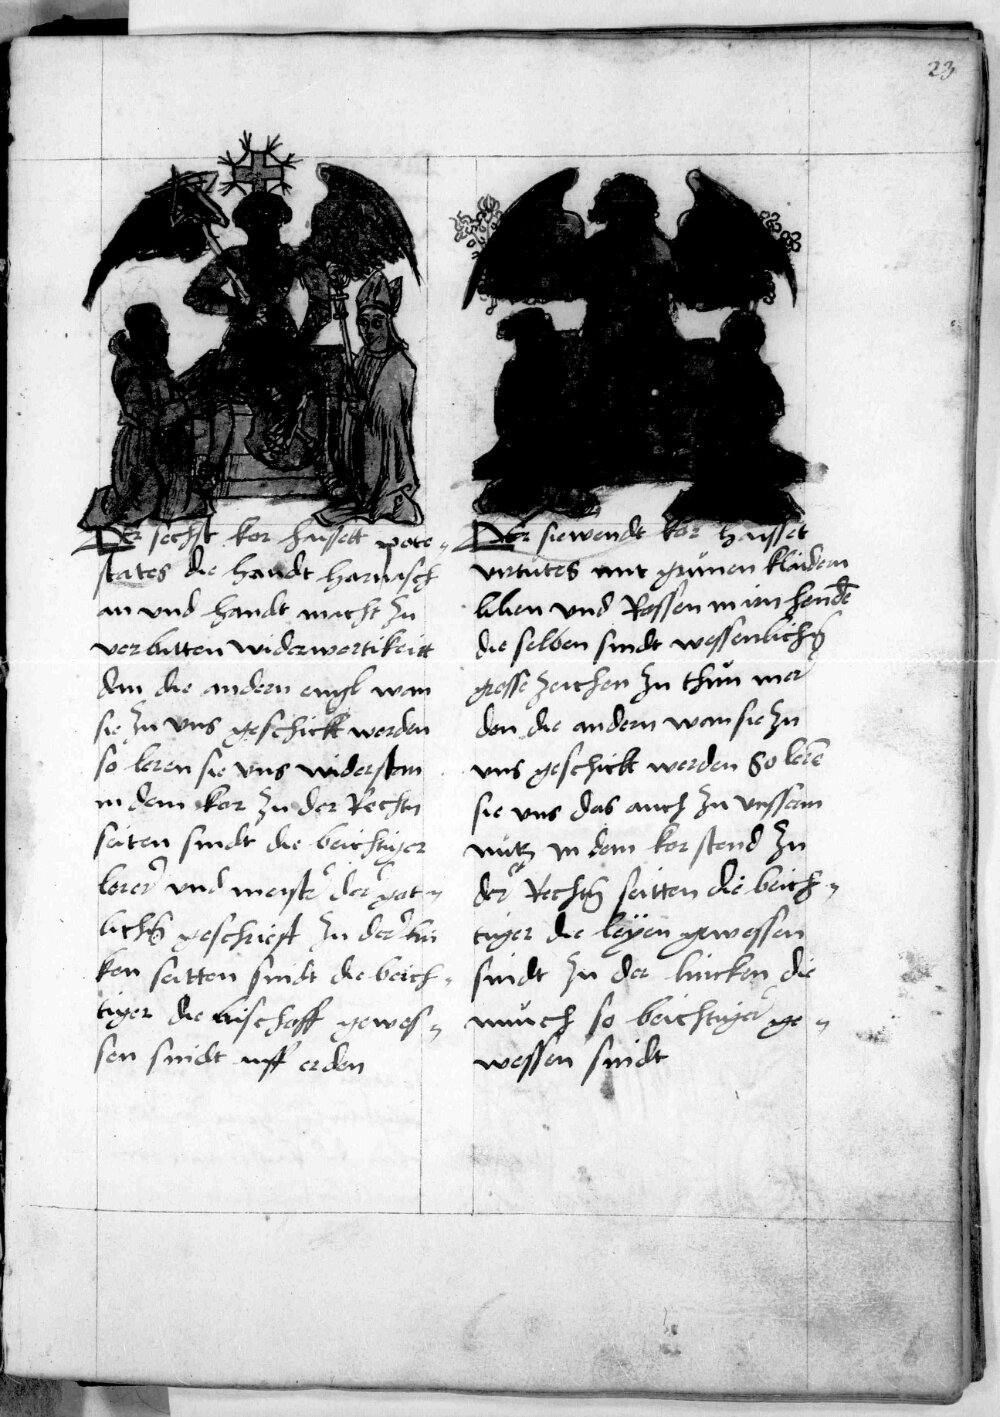 23
Der sechst kor haissett pote„
states die handt harnisch
an vnd handt macht zu
verbitten widerwertikeitt
dan die andern engl wan
sie zu vns geschickt werden
so leren sie vns widersten
in dem kor zu der Rechtn
seiten sindt die beichtiger
lerer vnd meistr der got„
lichn geschriefft zu der lin
ken seitten sindt die beich„
tiger die bischoff gewes„
sen sindt uff erden
Der siewendt kor haisset
virtutes mit grünen klaidern
lilien vnd Rossen in irn hendē
die selben sindt wessenlichn
grosse zeichen zu thün mer
den die andern wan sie zu
vns geschickt werden So lerē
sie vns das auch zu vnssern
nütz in dem kor stend zu
der Rechtn seitten die beich„
tiger die leÿen gewessen
sindt zu der lincken die
münch so beichtiger ge„
wessen sindt